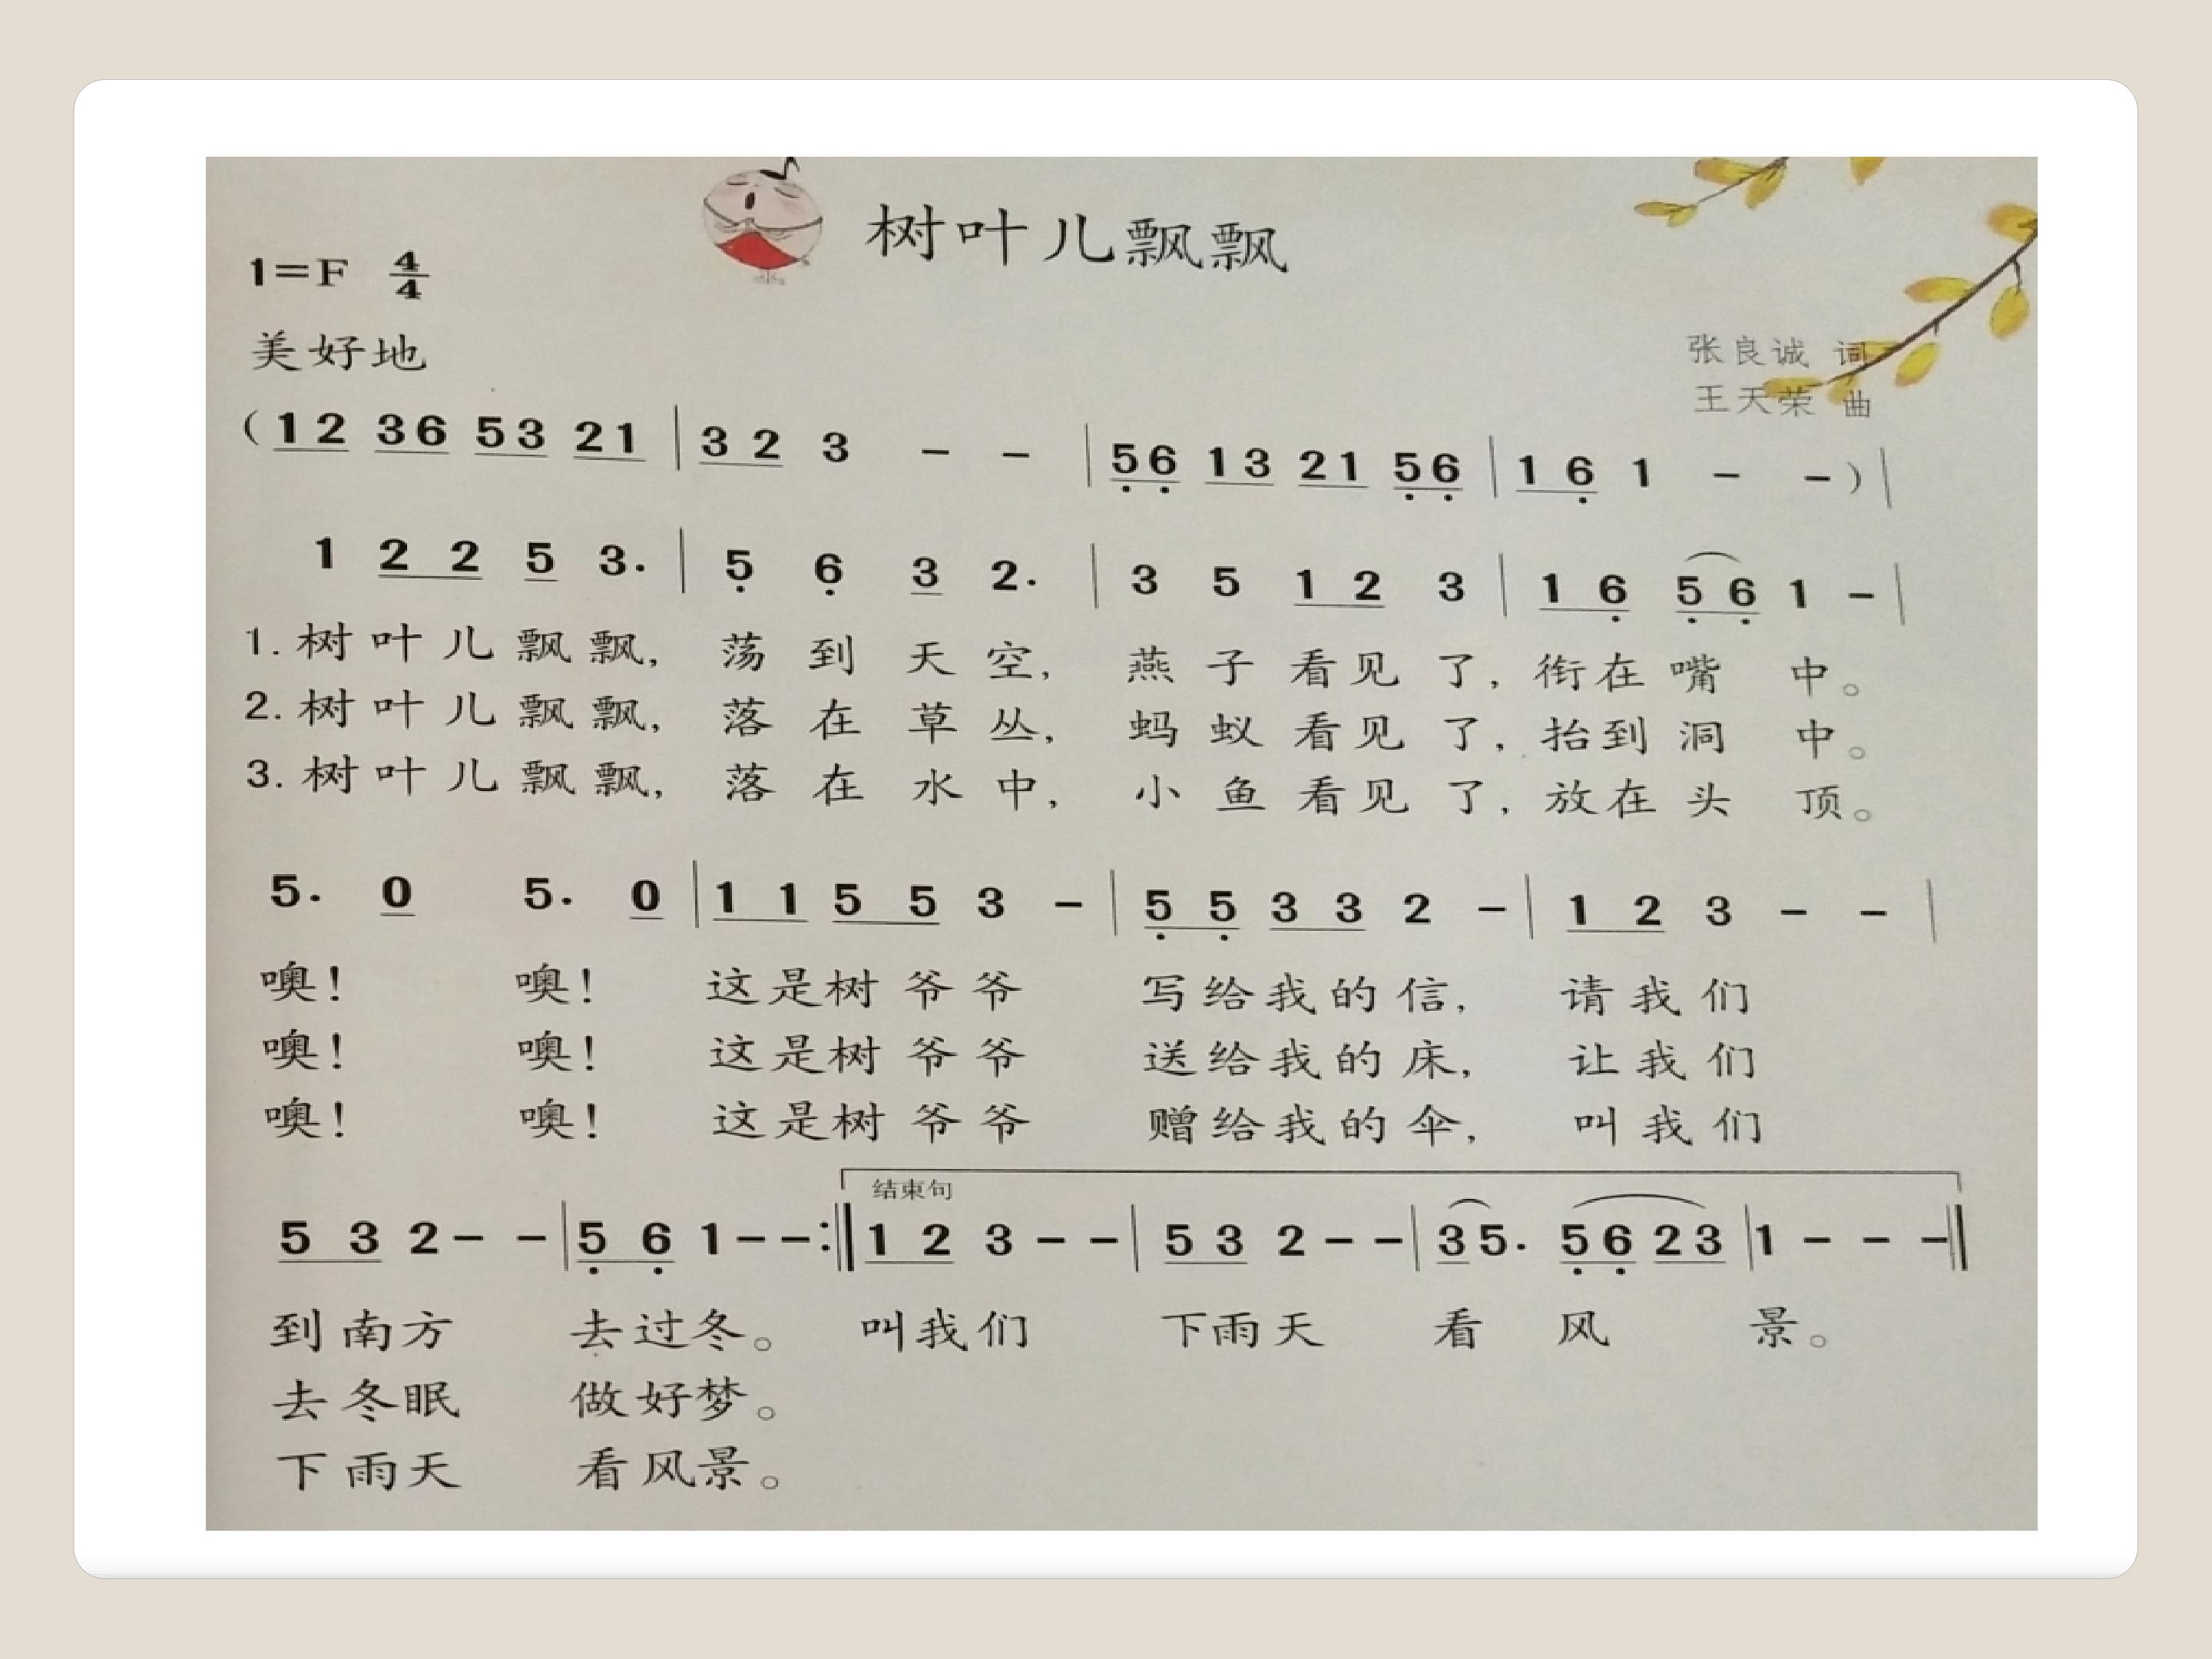 树叶儿飘飘
1=F 4/4
美好地
张良诚 词
王天荣 曲
(1 2 3 6 5 3 2 1 | 3 2 3 - - | 5̣ 6̣ 1 3 2 1 5̣ 6̣ | 1 6̣ 1 - -) |
1 2 2 5 3. | 5̣ 6̣ 3 2. | 3 5 1 2 3 | 1 6̣ 5̣ 6̣ 1 - |
1. 树叶儿飘飘, 荡到天空, 燕子看见了, 衔在嘴中。
2. 树叶儿飘飘, 落在草丛, 蚂蚁看见了, 抬到洞中。
3. 树叶儿飘飘, 落在水中, 小鱼看见了, 放在头顶。
5. 0 5. 0 | 1 1 5 5 3 - | 5̣ 5̣ 3 3 2 - | 1 2 3 - - |
噢! 噢! 这是树爷爷 写给我的信, 请我们
噢! 噢! 这是树爷爷 送给我的床, 让我们
噢! 噢! 这是树爷爷 赠给我的伞, 叫我们
结束句
5 3 2 - - | 5̣ 6̣ 1 - - :‖ 1 2 3 - - | 5 3 2 - - | 3 5. 5̣ 6̣ 2 3 | 1 - - - ‖
到南方 去过冬。 叫我们 下雨天 看风景。
去冬眠 做好梦。
下雨天 看风景。